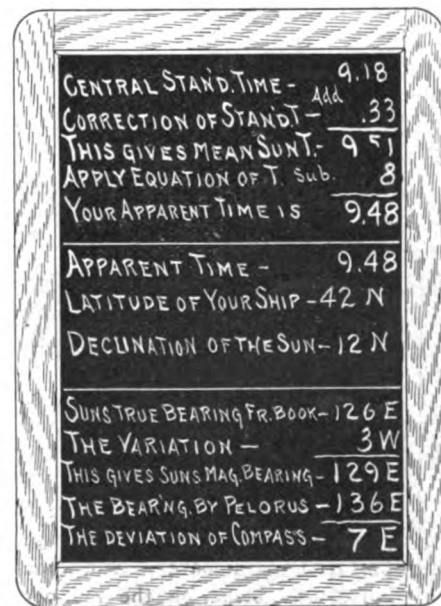 CENTRAL STAN'D. TIME - 9.18
CORRECTION OF STAN'D.T - Add .33
THIS GIVES MEAN SUN T. - 9 51
APPLY EQUATION OF T. Sub. 8
YOUR APPARENT TIME IS 9.48
APPARENT TIME - 9.48
LATITUDE OF YOUR SHIP - 42 N
DECLINATION OF THE SUN - 12 N
SUNS TRUE BEARING FR. BOOK - 126 E
THE VARIATION - 3 W
THIS GIVES SUNS MAG. BEARING - 129 E
THE BEAR'NG. BY PELORUS - 136 E
THE DEVIATION OF COMPASS - 7 E